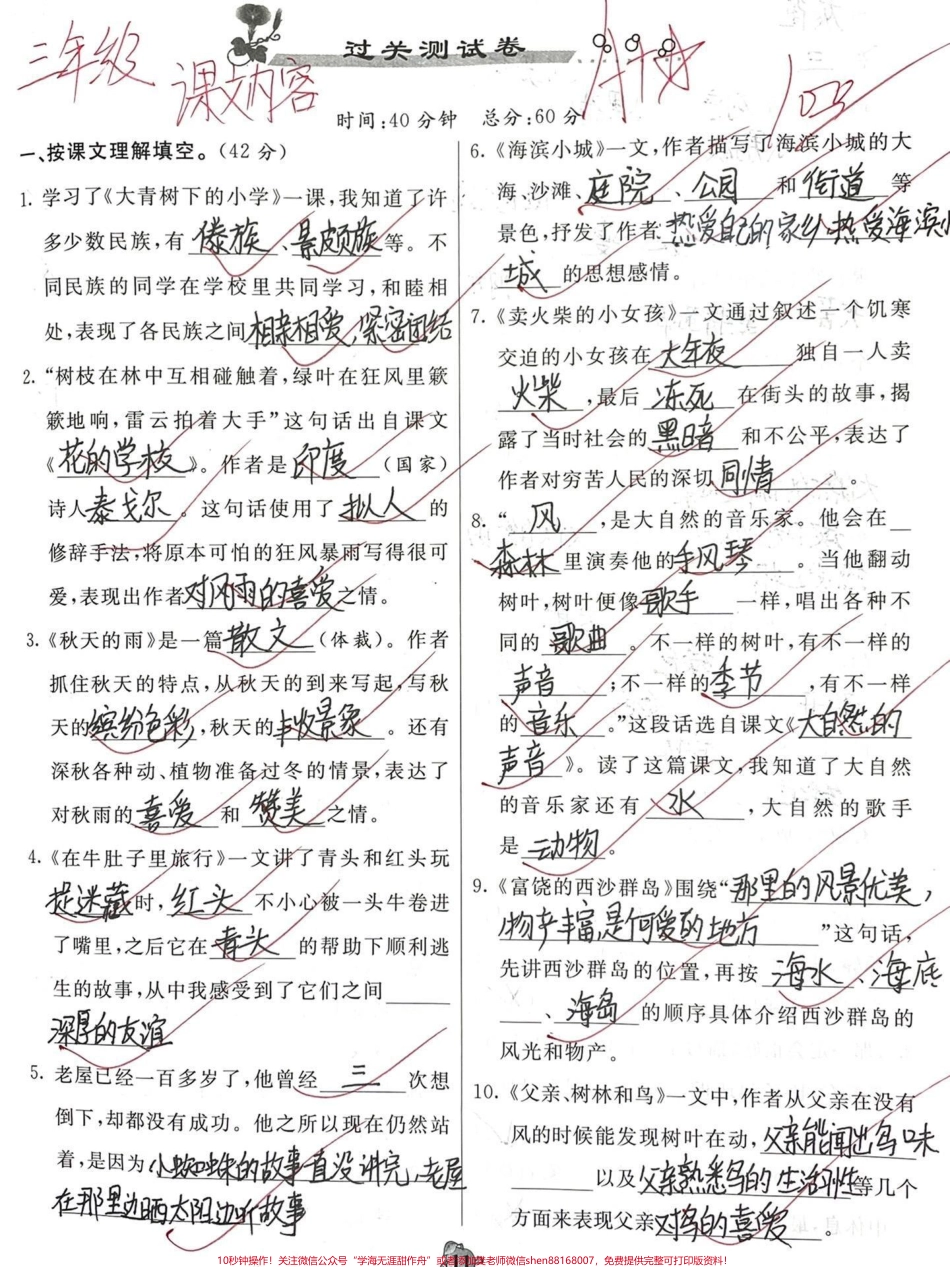 三年级
课文内容
过关测试卷
时间:40分钟 总分:60分
一、按课文理解填空。(42分)
1. 学习了《大青树下的小学》一课,我知道了许
多少数民族,有 傣族 、景颇族等。不
同民族的同学在学校里共同学习,和睦相
处,表现了各民族之间相亲相爱,紧密团结
2. “树枝在林中互相碰触着,绿叶在狂风里簌
簌地响,雷云拍着大手”这句话出自课文
《花的学校》。作者是 印度 (国家)
诗人泰戈尔。这句话使用了 拟人 的
修辞手法,将原本可怕的狂风暴雨写得很可
爱,表现出作者对风雨的喜爱之情。
3. 《秋天的雨》是一篇散文(体裁)。作者
抓住秋天的特点,从秋天的到来写起,写秋
天的缤纷色彩,秋天的丰收景象。还有
深秋各种动、植物准备过冬的情景,表达了
对秋雨的喜爱 和 赞美 之情。
4. 《在牛肚子里旅行》一文讲了青头和红头玩
捉迷藏时,红头 不小心被一头牛卷进
了嘴里,之后它在 青头 的帮助下顺利逃
生的故事,从中我感受到了它们之间
深厚的友谊
5. 老屋已经一百多岁了,他曾经 三 次想
倒下,却都没有成功。他之所以现在仍然站
着,是因为小蜘蛛的故事一直没讲完,老屋
在那里边晒太阳边听故事
6. 《海滨小城》一文,作者描写了海滨小城的大
海、沙滩、庭院 、公园 和 街道 等
景色,抒发了作者热爱自己的家乡,热爱海滨小
城 的思想感情。
7. 《卖火柴的小女孩》一文通过叙述一个饥寒
交迫的小女孩在 大年夜 独自一人卖
火柴 ,最后 冻死 在街头的故事,揭
露了当时社会的黑暗 和不公平,表达了
作者对穷苦人民的深切同情 。
8. “ 风 ,是大自然的音乐家。他会在
森林里演奏他的手风琴 。当他翻动
树叶,树叶便像歌手 一样,唱出各种不
同的 歌曲 。不一样的树叶,有不一样的
声音 ;不一样的季节 ,有不一样
的 音乐 。”这段话选自课文《大自然的
声音 》。读了这篇课文,我知道了大自然
的音乐家还有 水 ,大自然的歌手
是 动物 。
9. 《富饶的西沙群岛》围绕“那里的风景优美,
物产丰富,是个可爱的地方 ”这句话,
先讲西沙群岛的位置,再按 海水 、海底
、海岛 的顺序具体介绍西沙群岛的
风光和物产。
10. 《父亲、树林和鸟》一文中,作者从父亲在没有
风的时候能发现树叶在动,父亲能闻出鸟味
以及父亲熟悉鸟的生活习性等几个
方面来表现父亲对鸟的喜爱 。
10秒钟操作!关注微信公众号“学海无涯甜作舟”或者添加龚老师微信shen88168007,免费提供完整可打印版资料!